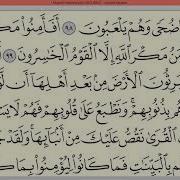 ضُحًى وَهُمْ يَلْعَبُونَ ٩٨ أَفَأَمِنُوا۟
مَكْرَ ٱللَّهِ إِلَّا ٱلْقَوْمُ ٱلْخَـٰسِرُونَ ٩٩
يَرِثُونَ ٱلْأَرْضَ مِنۢ بَعْدِ أَهْلِهَآ أَن
بِذُنُوبِهِمْ وَنَطْبَعُ عَلَىٰ قُلُوبِهِمْ فَهُمْ لَا
ٱلْقُرَىٰ نَقُصُّ عَلَيْكَ مِنْ أَنۢبَآئِهَا وَلَقَدْ
بِٱلْبَيِّنَـٰتِ فَمَا كَانُوا۟ لِيُؤْمِنُوا۟ بِمَا